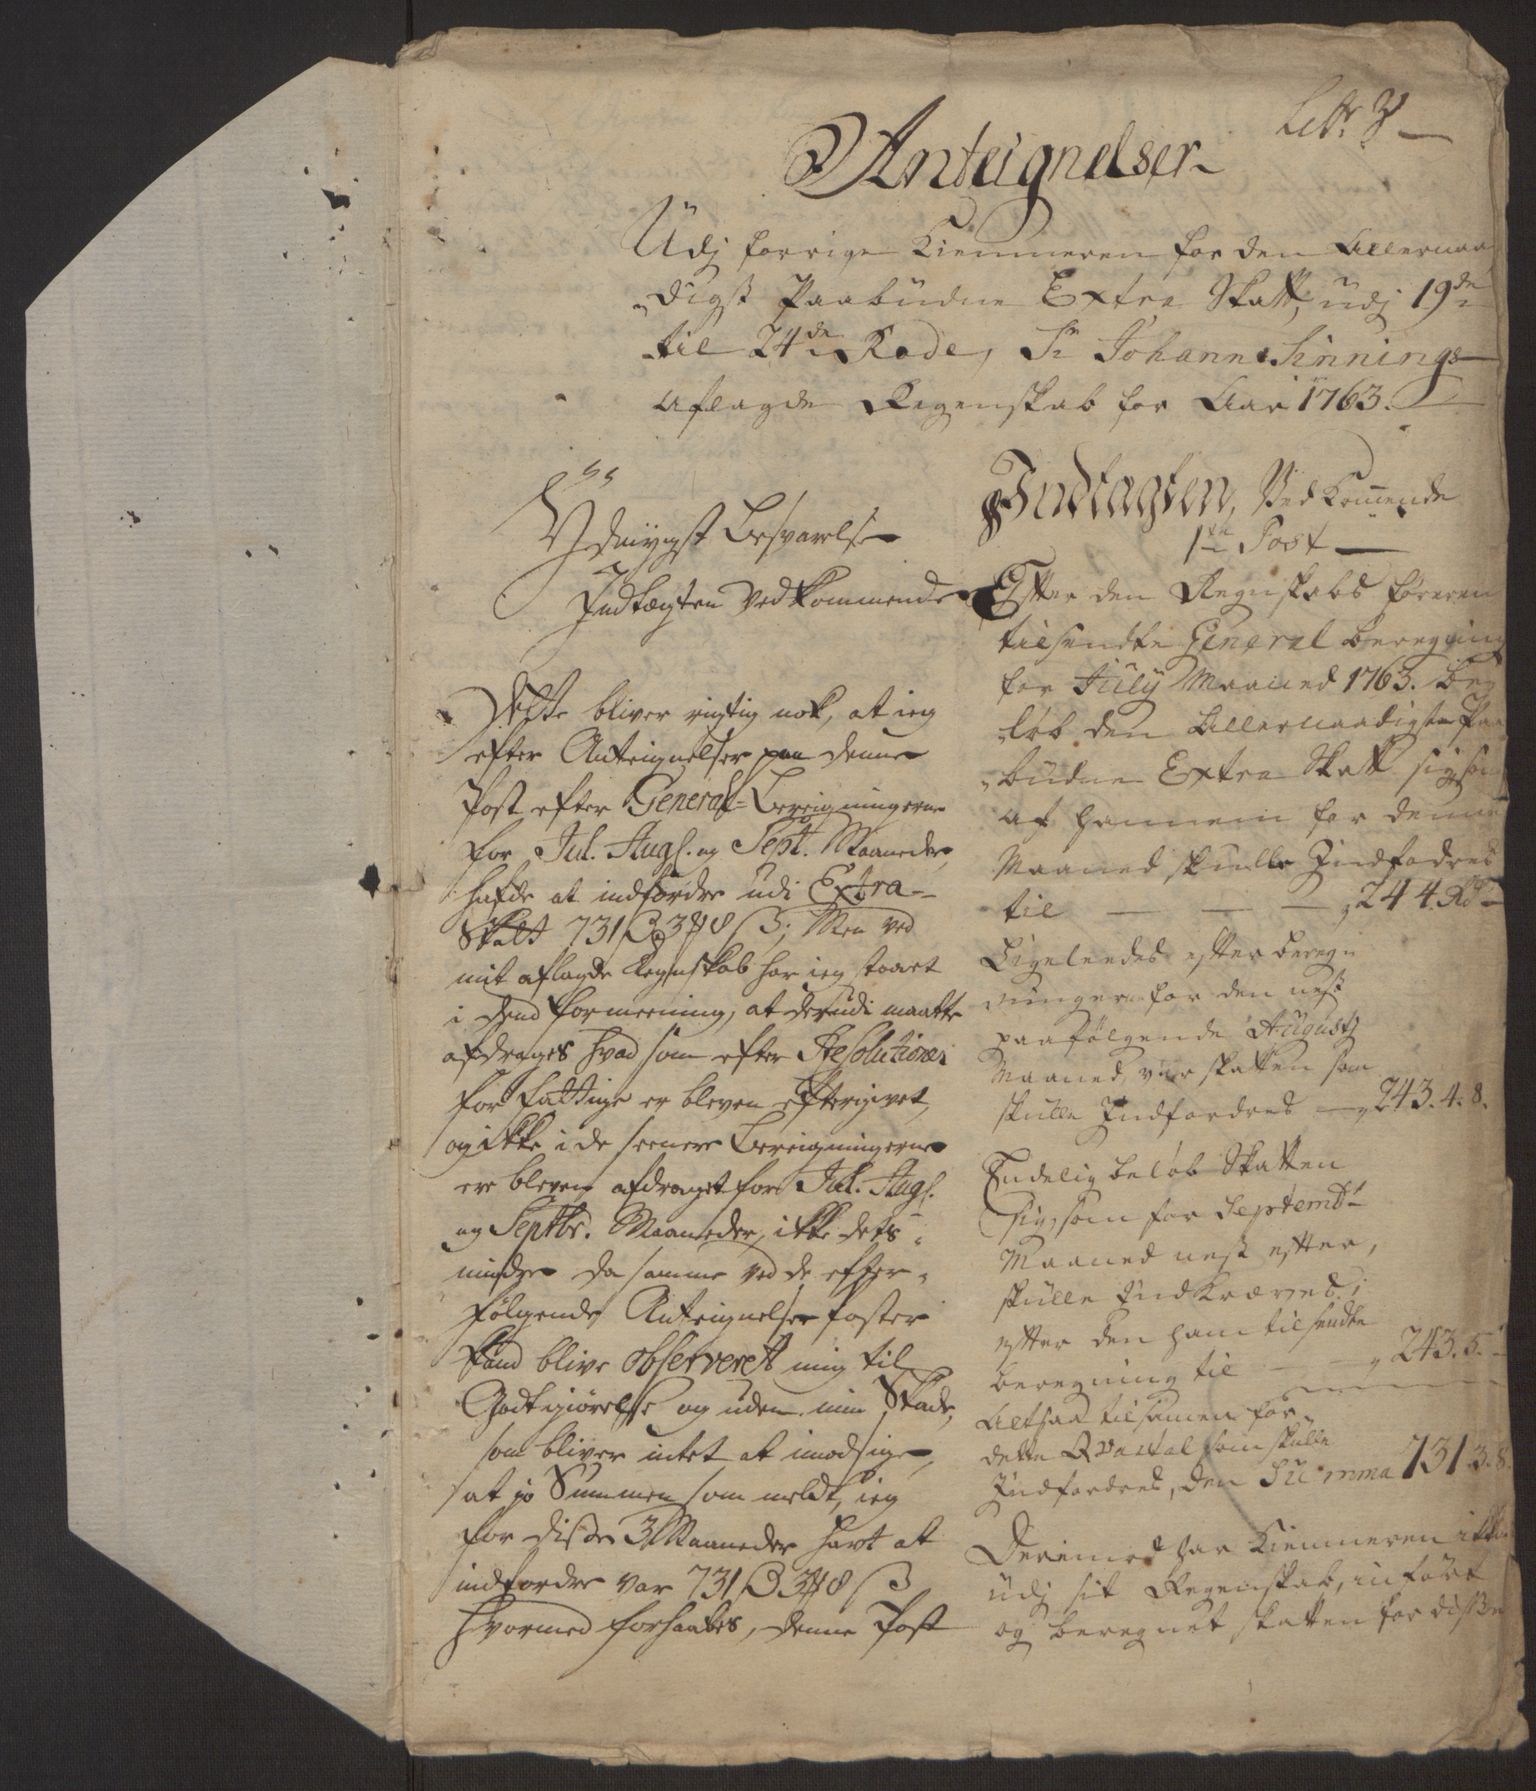 Litr. B
Anteignelser
Udj forrige Kiemneren for den Allernaa
digst Paabudne Extra Skatt, udj 19de
til 24de Rode, Sr Johannes Sinnings
aflagde Regenskab for Aar 1763.
Ydmygst Besvarelse
Indtægten Vedkommende
Dette bliver rigtig nok, at ieg
efter Anteignelser paa denne
Post efter General-Bereigningerne
for Jul. Augs. og Sept. Maaneder,
hafde at indfordre udi Extra-
Skatt 731 Rd 3 m 8 s; Men ved
mit aflagde Regnskab har ieg staaet
i dend formeening, at derudi maatte
afdrages hvad som efter Resolutioner
for fattige er bleven eftergivet,
og ikke i de seenere Bereigningerne
ere bleven afdraget for Jul. Augs.
og Septbr. Maaneder, ikke dets
mindre da samme ved de efter-
følgende Anteignelser poster
kand blive observeret mig til
Godtgiørelse og uden min Skade,
som bliver intet at imodsige,
at jo Summen som meldt, ieg
for disse 3 Maaneder havt at
indfordre var 731 Rd 3 m 8 s
hvormed forhaabes, denne Post
Indtagten, Vedkommende
1te Post
Efter den Regnskabs føreren
tilsendte General beregning
for July Maaned 1763. be
løb den Allernaadigste Paa
budne Extra Skatt sig, som
af hannem for denne
Maaned skulle Indfodres
til — — — 244 Rd
Ligeleedes efter bereg-
ningerne for den nest
paafølgende Augusty
Maaned, var skatten som
skulle Indfordres — 243. 4. 8.
Endelig beløb Skatten
sig, som for Septembr
Maaned nest efter,
skulle Indkræves,
efter den ham tilsendte
beregning til — — 243. 5.
Altsaa tilsamen for
dette Qvartal som skulle
Indfordres, den Summa 731. 3. 8.
Derimod har Kiemneren ikke
udj sit Regenskab, inført
og beregnet skatten for disse